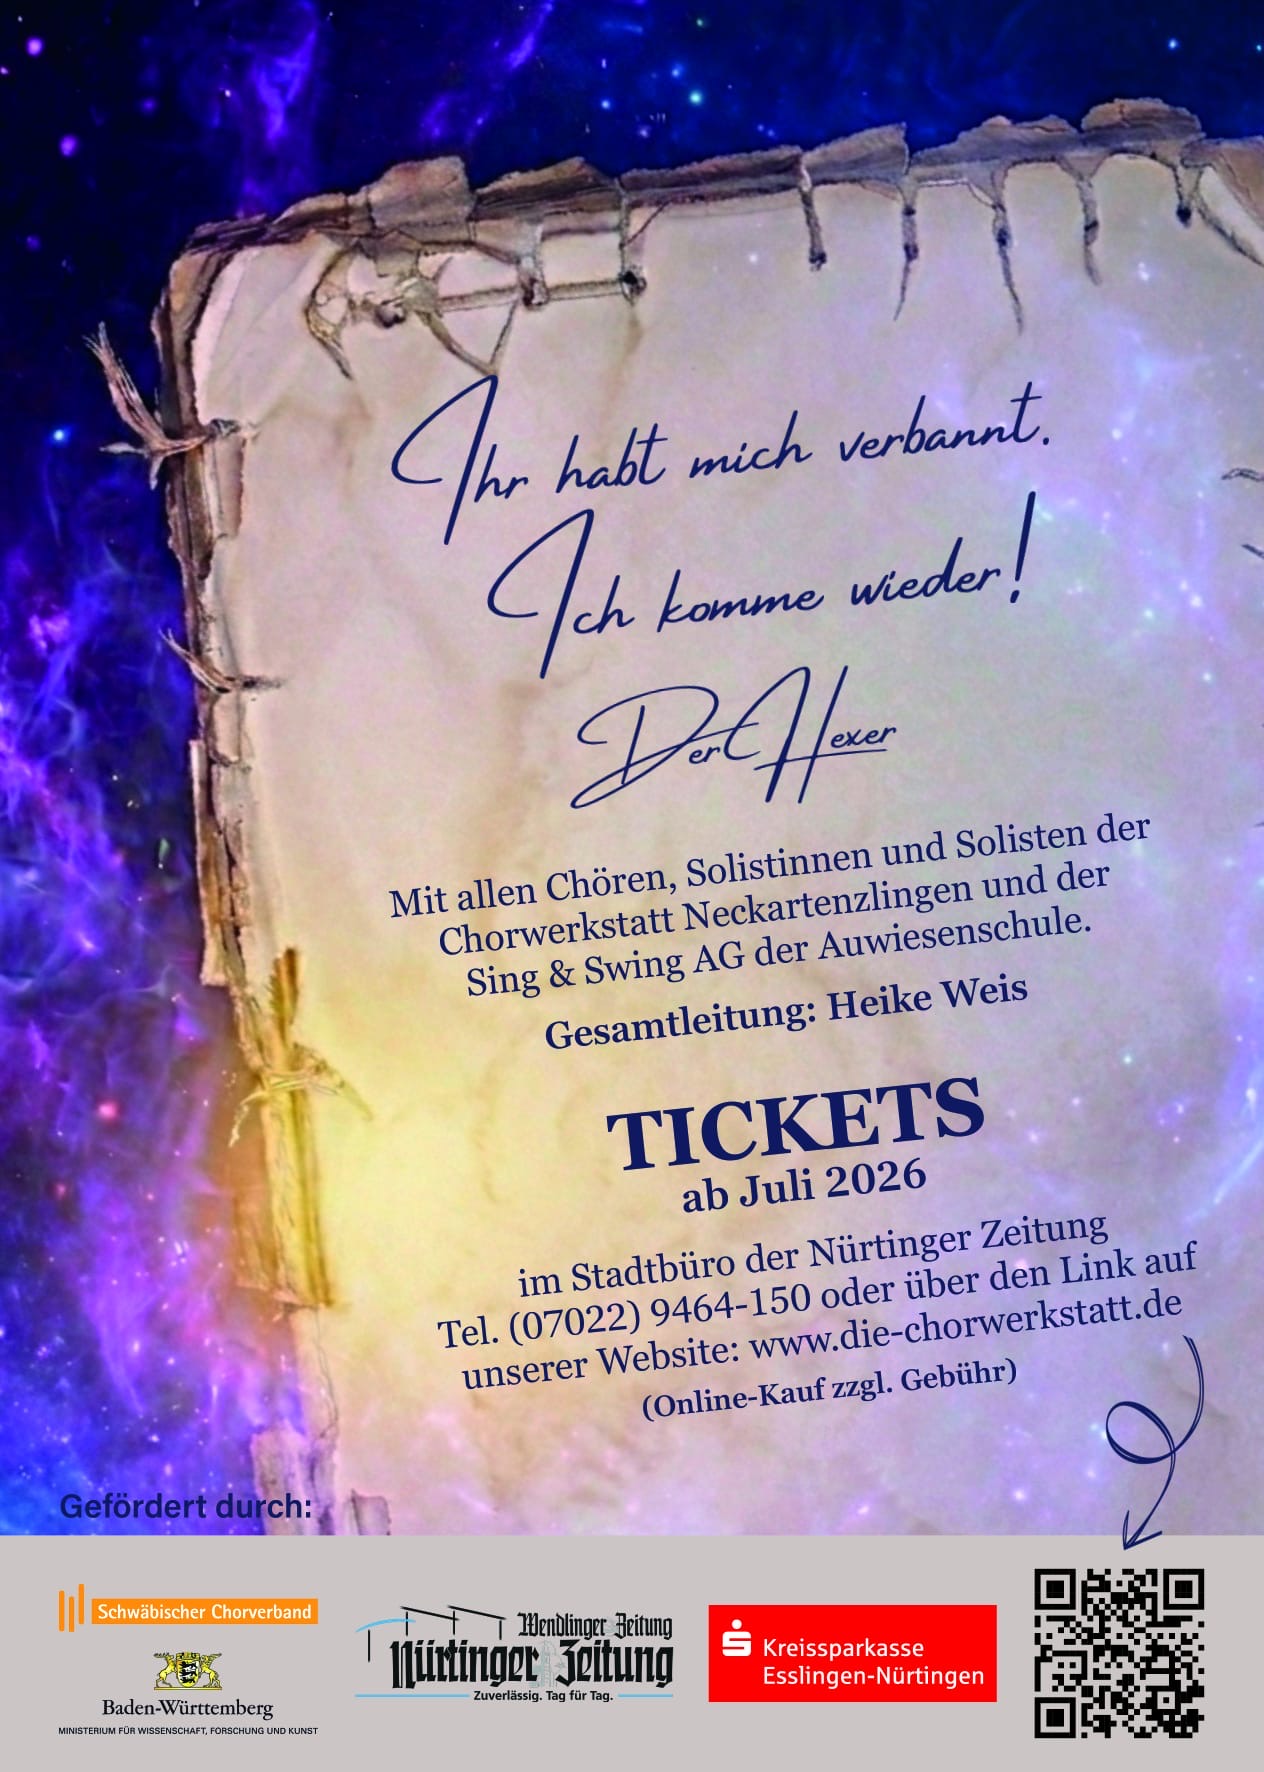 Ihr habt mich verbannt.
Ich komme wieder!
Der Hexer
Mit allen Chören, Solistinnen und Solisten der
Chorwerkstatt Neckartenzlingen und der
Sing & Swing AG der Auwiesenschule.
Gesamtleitung: Heike Weis
TICKETS
ab Juli 2026
im Stadtbüro der Nürtinger Zeitung
Tel. (07022) 9464-150 oder über den Link auf
unserer Website: www.die-chorwerkstatt.de
(Online-Kauf zzgl. Gebühr)
Gefördert durch:
Schwäbischer Chorverband
Baden-Württemberg
MINISTERIUM FÜR WISSENSCHAFT, FORSCHUNG UND KUNST
Wendlinger Zeitung
Nürtinger Zeitung
Zuverlässig. Tag für Tag.
Kreissparkasse
Esslingen-Nürtingen